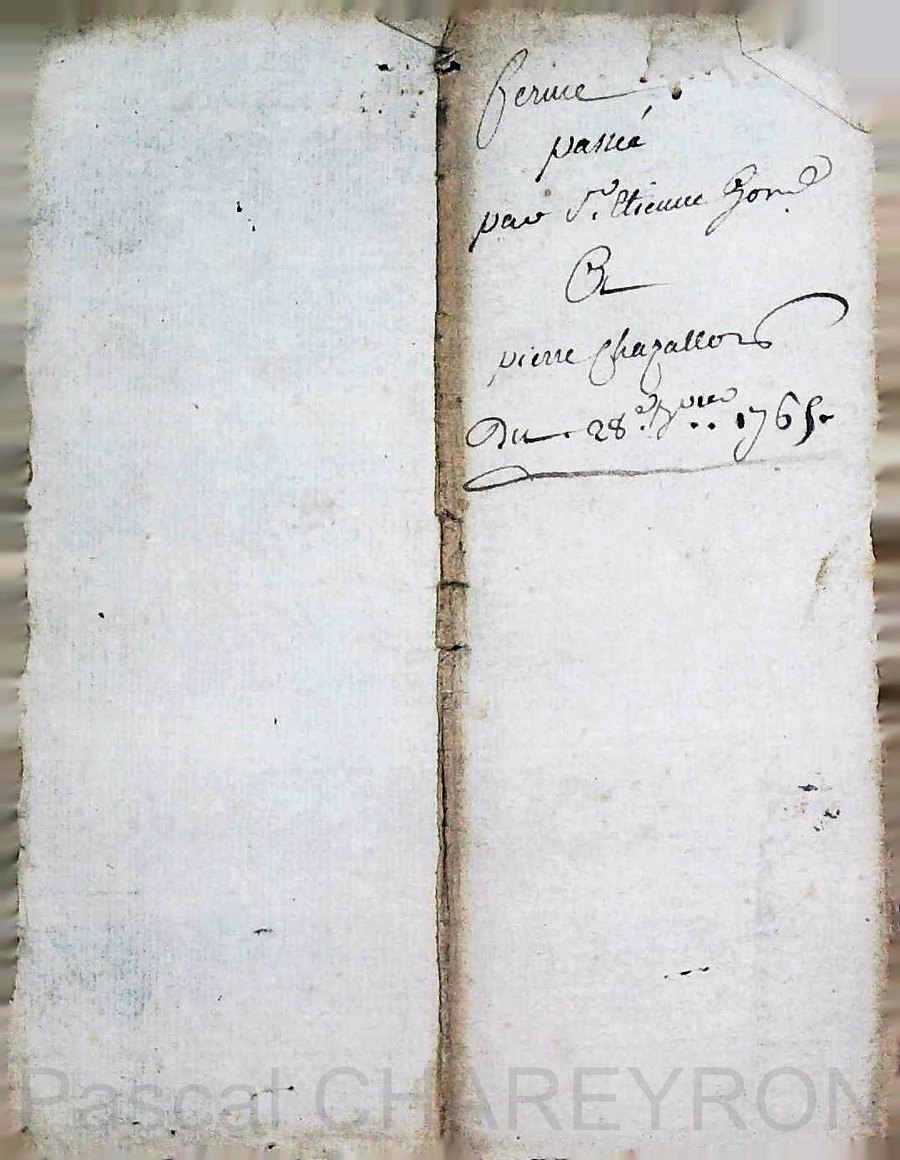 ferme
passée
par Sr. Etienne
Et
pierre Chazallon
Du 28e. 1765.
Pascal CHAREYRON